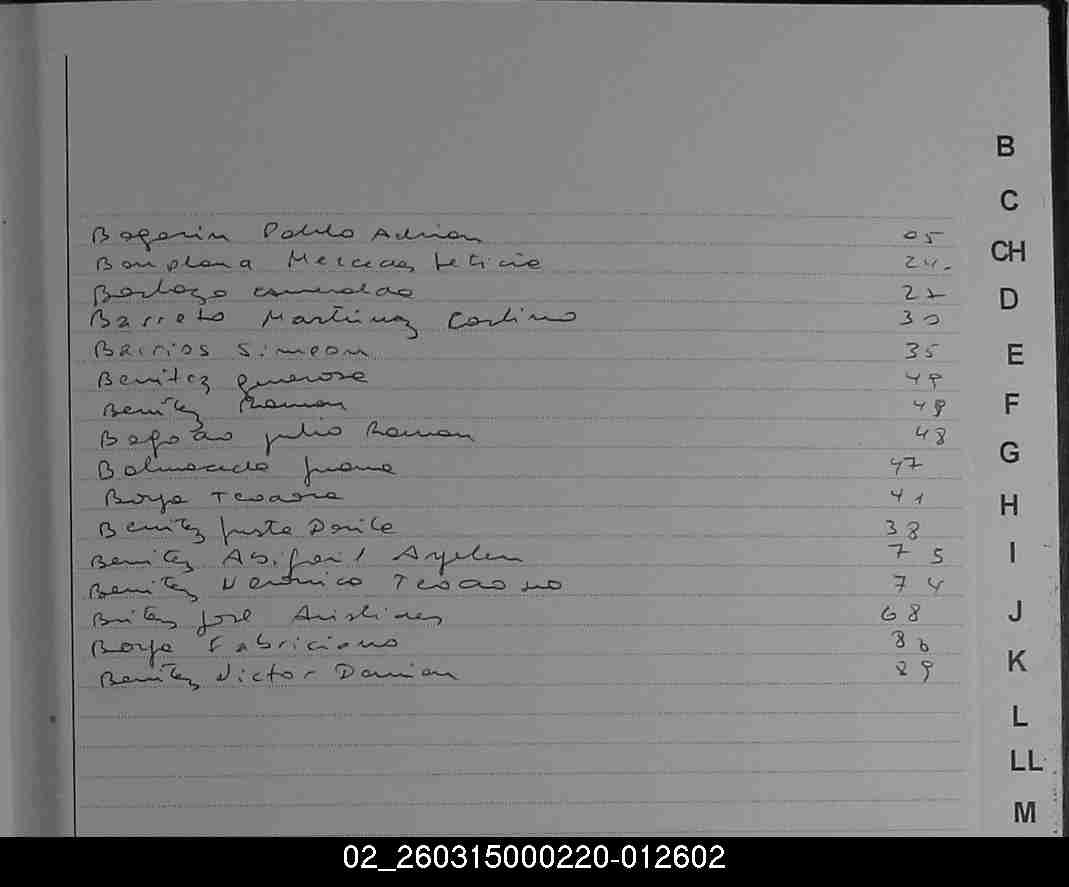 Bogarin Pablo Adrian 05
B
C
CH
Bonplana Mercedes Leticia 24.
D
Esmeralda 27
Barreto Martinez Castino 30
Barrios Simeon 35
E
Benitez generosa 49
Benitez Ramon 48
F
julio Ramon 48
G
Balmaceda Juana 47
Borja Teodora 41
H
Benitez Justa 38
I
Benitez Abigail Ayelen 75
Benitez Veronica 74
J
Britez José Aristides 68
Borja Fabriciano 86
K
Benitez Victor Damian 89
L
LL
M
02_260315000220-012602